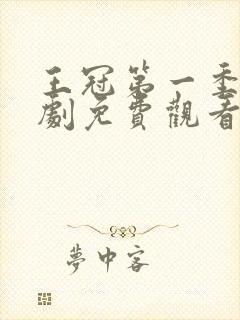 王冠第一季
劇免費觀看
夢中客